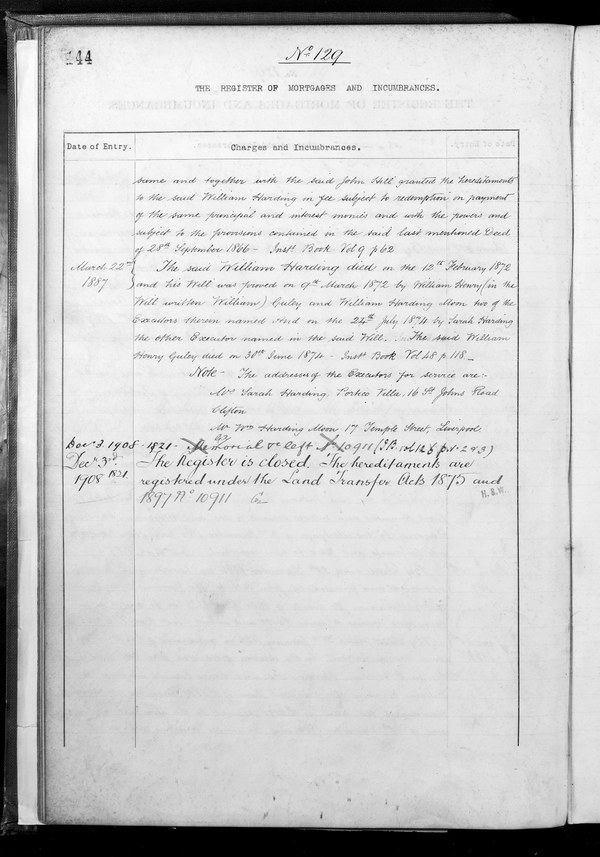 144
No 129
THE REGISTER OF MORTGAGES AND INCUMBRANCES.
Date of Entry.
Charges and Incumbrances.
same and together with the said John Hill granted the hereditaments
to the said William Harding in fee subject to redemption on payment
of the same principal and interest monies and with the powers and
subject to the provisions contained in the said last mentioned Deed
of 28th September 1866 - Instt Book Vol 9 p 62
March 22nd
1887
The said William Harding died on the 12th February 1872
and his Will was proved on 9th March 1872 by William Henry (in the
Will written William) Guley and William Harding Moon two of the
Executors therein named And on the 24th July 1874 by Sarah Harding
the other Executor named in the said Will. The said William
Henry Guley died on 30th June 1874 - Instt Book Vol 48 p 118
Note - The addresses of the Executors for service are:-
Mrs Sarah Harding. Portico Villa, 16 St Johns Road
Clifton
Mr Wm Harding Moon 17 Temple Street, Liverpool
Decr 3 1908 - 1821 - Memorial &c left No 10911
Decr 3rd
1908
The Register is closed. The hereditaments are
registered under the Land Transfer Acts 1875 and
1897 No 10911
H.R.W.